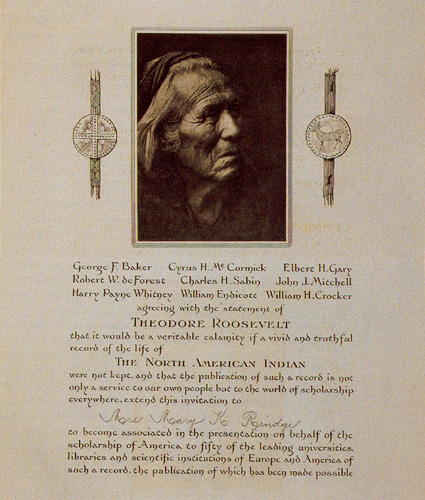 George F. Baker Cyrus H. McCormick Elbert H. Gary
Robert W. deForest Charles H. Sabin John J. Mitchell
Harry Payne Whitney William Endicott William H. Crocker
agreeing with the statement of
THEODORE ROOSEVELT
that it would be a veritable calamity if a vivid and truthful
record of the life of
THE NORTH AMERICAN INDIAN
were not kept, and that the publication of such a record is not
only a service to our own people but to the world of scholarship
everywhere, extend this invitation to
Mrs Mary K Rindge
to become associated in the presentation on behalf of the
scholarship of America to fifty of the leading universities,
libraries and scientific institutions of Europe and America of
such a record, the publication of which has been made possible